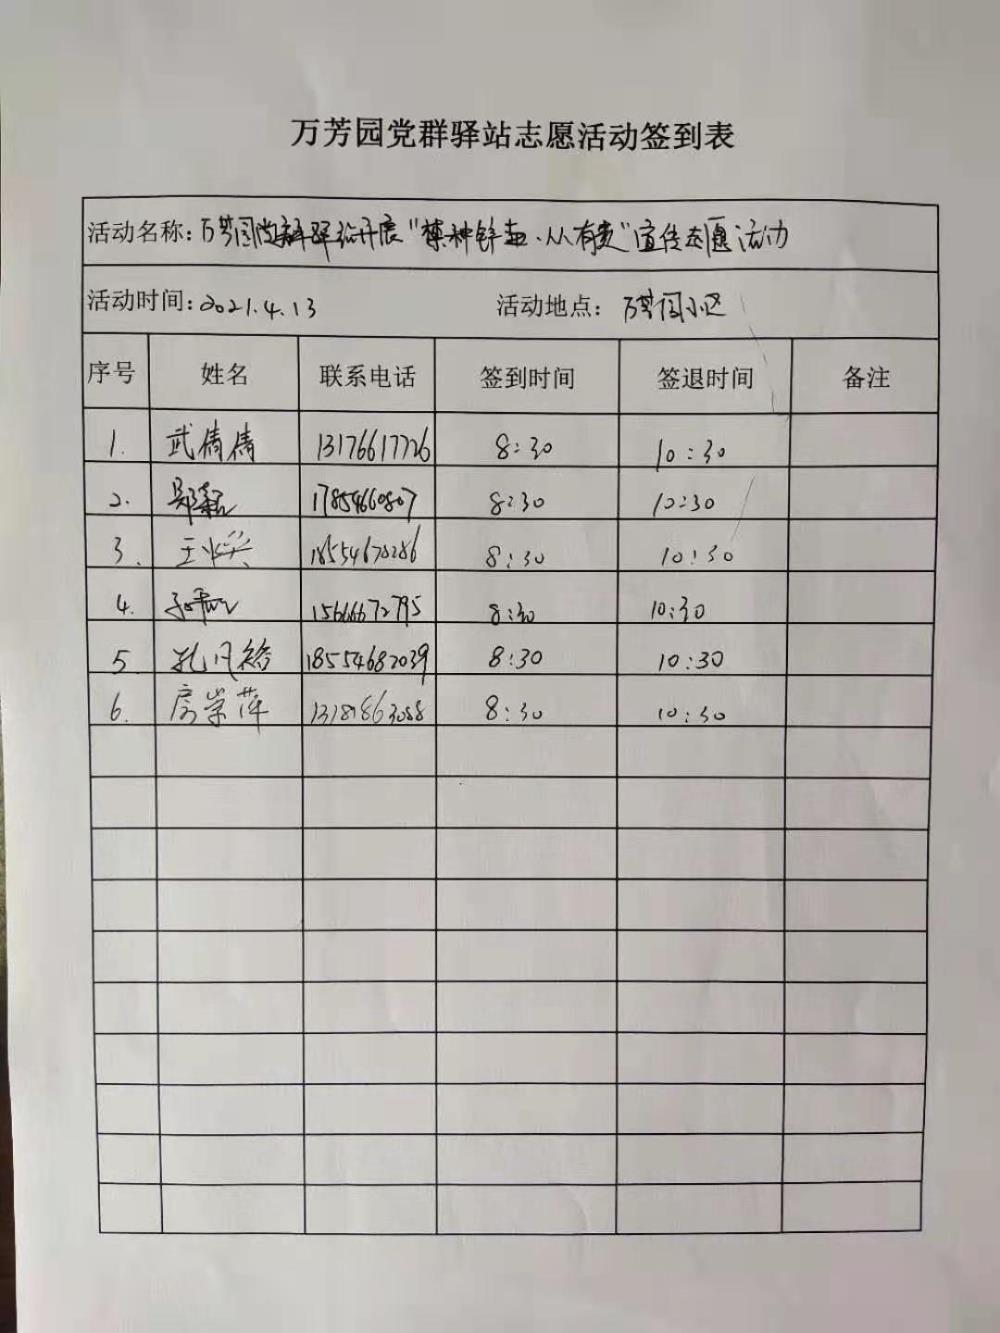 万芳园党群驿站志愿活动签到表
活动名称:万芳园党群驿站开展“接种疫苗·人人有责”宣传志愿活动
活动时间:2021.4.13 活动地点:万芳园小区
序号 姓名 联系电话 签到时间 签退时间 备注
1. 武倩倩 13176617726 8:30 10:30
2. 17854660807 8:30 10:30
3. 18554670286 8:30 10:30
4. 15666672795 8:30 10:30
5 孔凤裕 18554682039 8:30 10:30
6. 房崇萍 13181863088 8:30 10:30